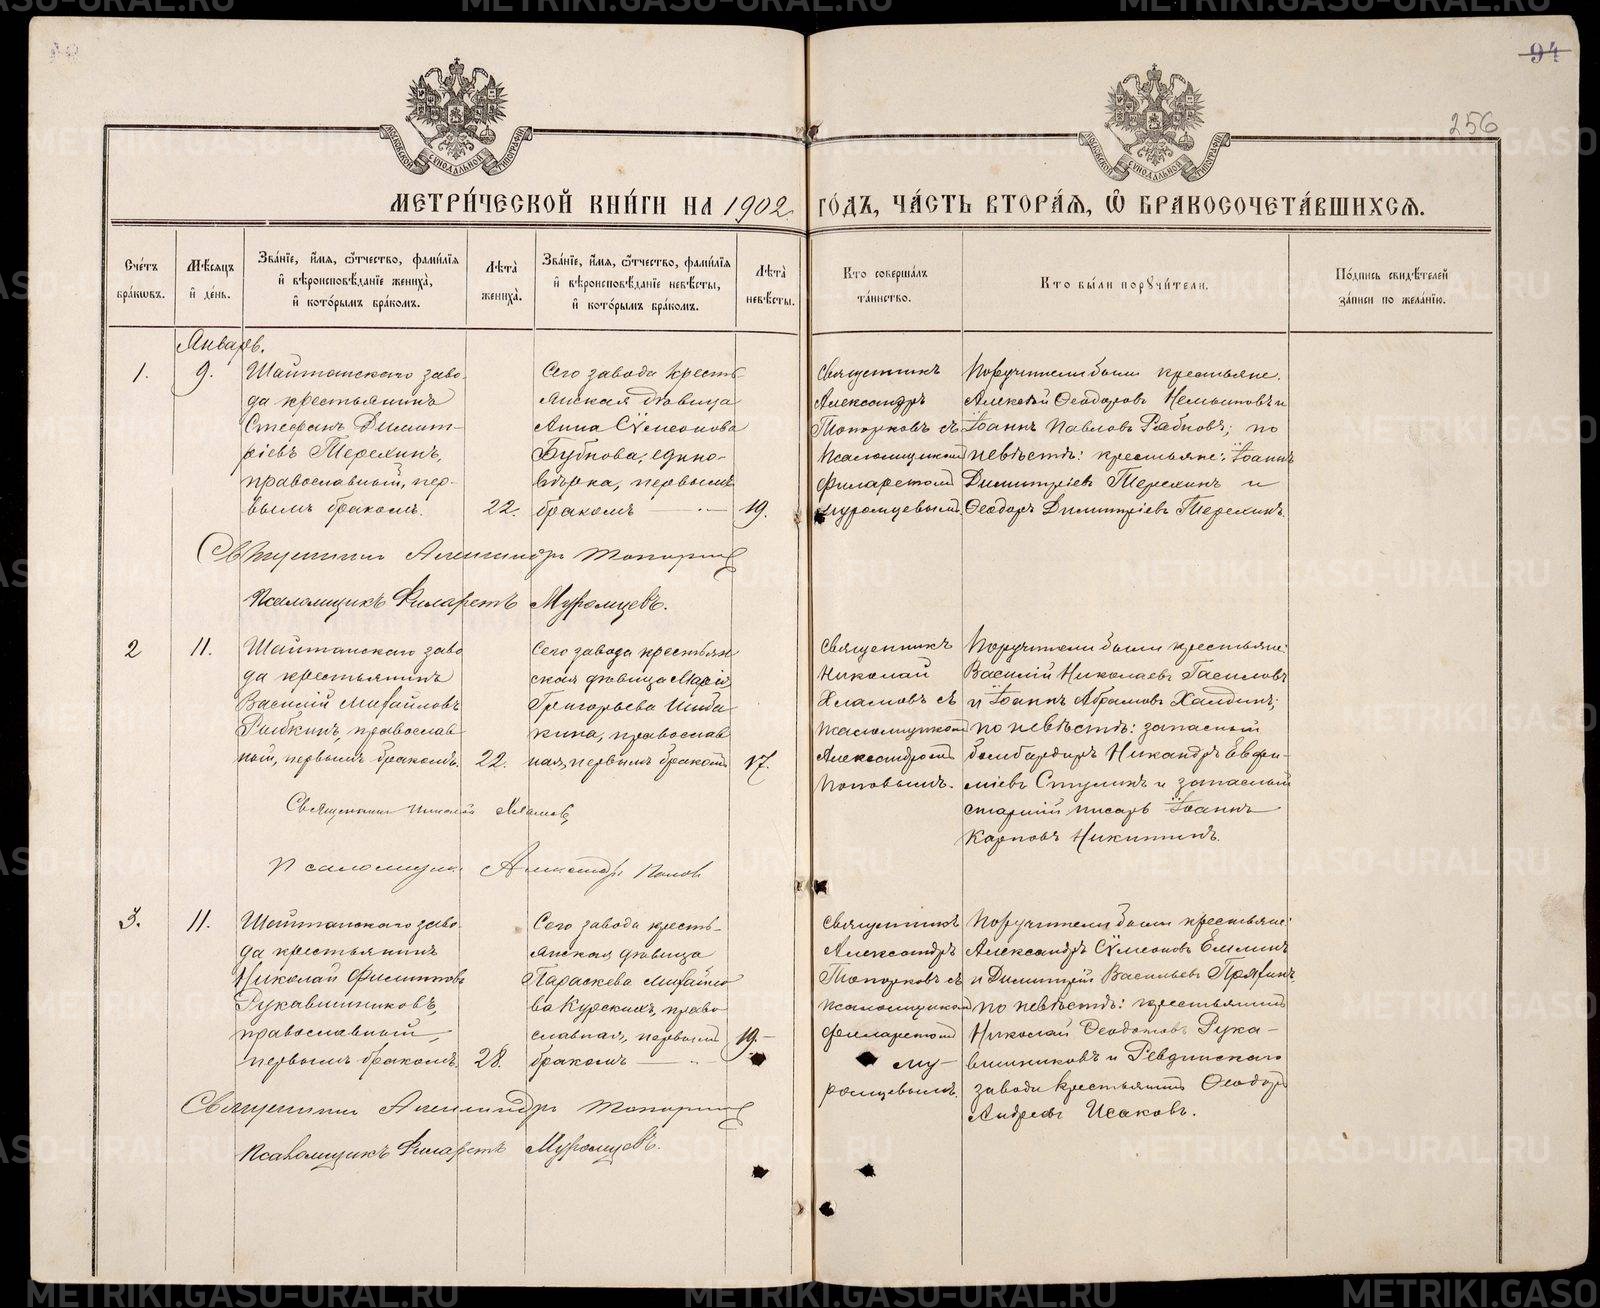 94
256
МЕТРИ́ЧЕСКОЙ КНИ́ГИ НА 1902 ГО́ДЪ, ЧА́СТЬ ВТОРА́Я, Ѡ БРАКОСОЧЕТА́ВШИХСЯ.
Сче́тъ бра́ковъ.
Мѣ́сяцъ и де́нь.
Зва́ніе, и́мя, о́тчество, фами́лія и вѣроисповѣ́даніе жениха̀, и кото́рымъ бра́комъ.
Лѣ́та жениха̀.
Зва́ніе, и́мя, о́тчество, фами́лія и вѣроисповѣ́даніе невѣ́сты, и кото́рымъ бра́комъ.
Лѣ́та невѣ́сты.
Кто соверша́лъ та́инство.
Кто бы́ли поручи́тели.
По́дпись свидѣ́телей за́писи по жела́нію.
Январь.
1.
9.
Шайтанскаго заво-
да крестьянинъ
Стефанъ Димит-
ріевъ Терехинъ,
православный, пер-
вымъ бракомъ.
22.
Сего завода кресть-
янская дѣвица
Анна Сѵмеонова
Бубнова, едино-
вѣрка, первымъ
бракомъ
19.
Священникъ
Александръ
Топорковъ съ
псаломщикомъ
Филаретомъ
Муромцевымъ.
Поручители были крестьяне:
Алексѣй Ѳеодоровъ и
Іоаннъ Павловъ Рябковъ; по
невѣстѣ: крестьяне: Іоаннъ
Димитріевъ Терехинъ и
Ѳеодоръ Димитріевъ Терехинъ.
Священникъ Александръ Топорковъ
Псаломщикъ Филаретъ Муромцевъ.
2
11.
Шайтанскаго заво-
да крестьянинъ
Василій Михайловъ
Рябкинъ, православ-
ный, первымъ бракомъ.
22.
Сего завода крестьян-
ская дѣвица Марія
Григорьева Шиба-
кина, православ-
ная, первымъ бракомъ
17.
Священникъ
Николай
Хламовъ съ
псаломщикомъ
Александромъ
Поповымъ.
Поручители были крестьяне:
Василій Николаевъ Гасиловъ
и Іоаннъ Абрамовъ Халдинъ;
по невѣстѣ: запасный
бомбардиръ Никандръ Евфи-
міевъ Ступинъ и запасный
старшій писарь Іоаннъ
Карповъ Никитинъ.
Священникъ Николай Хламовъ
Псаломщикъ Александръ Поповъ
3.
11.
Шайтанскаго заво-
да крестьянинъ
Николай Филипповъ
Рукавишниковъ,
православный,
первымъ бракомъ.
28.
Сего завода кресть-
янская дѣвица
Параскева Михайло-
ва Курскихъ, право-
славная, первымъ
бракомъ
19.
Священникъ
Александръ
Топорковъ съ
псаломщикомъ
Филаретомъ
Му-
ромцевымъ.
Поручители были крестьяне:
Александръ Сѵмеоновъ Емлинъ
и Димитрій Васильевъ Пряхинъ;
по невѣстѣ: крестьянинъ
Николай Ѳеодотовъ Рука-
вишниковъ и Ревдинскаго
завода крестьянинъ Ѳеодоръ
Андреевъ Исаковъ.
Священникъ Александръ Топорковъ
Псаломщикъ Филаретъ Муромцевъ.
METRIKI.GASO-URAL.RU